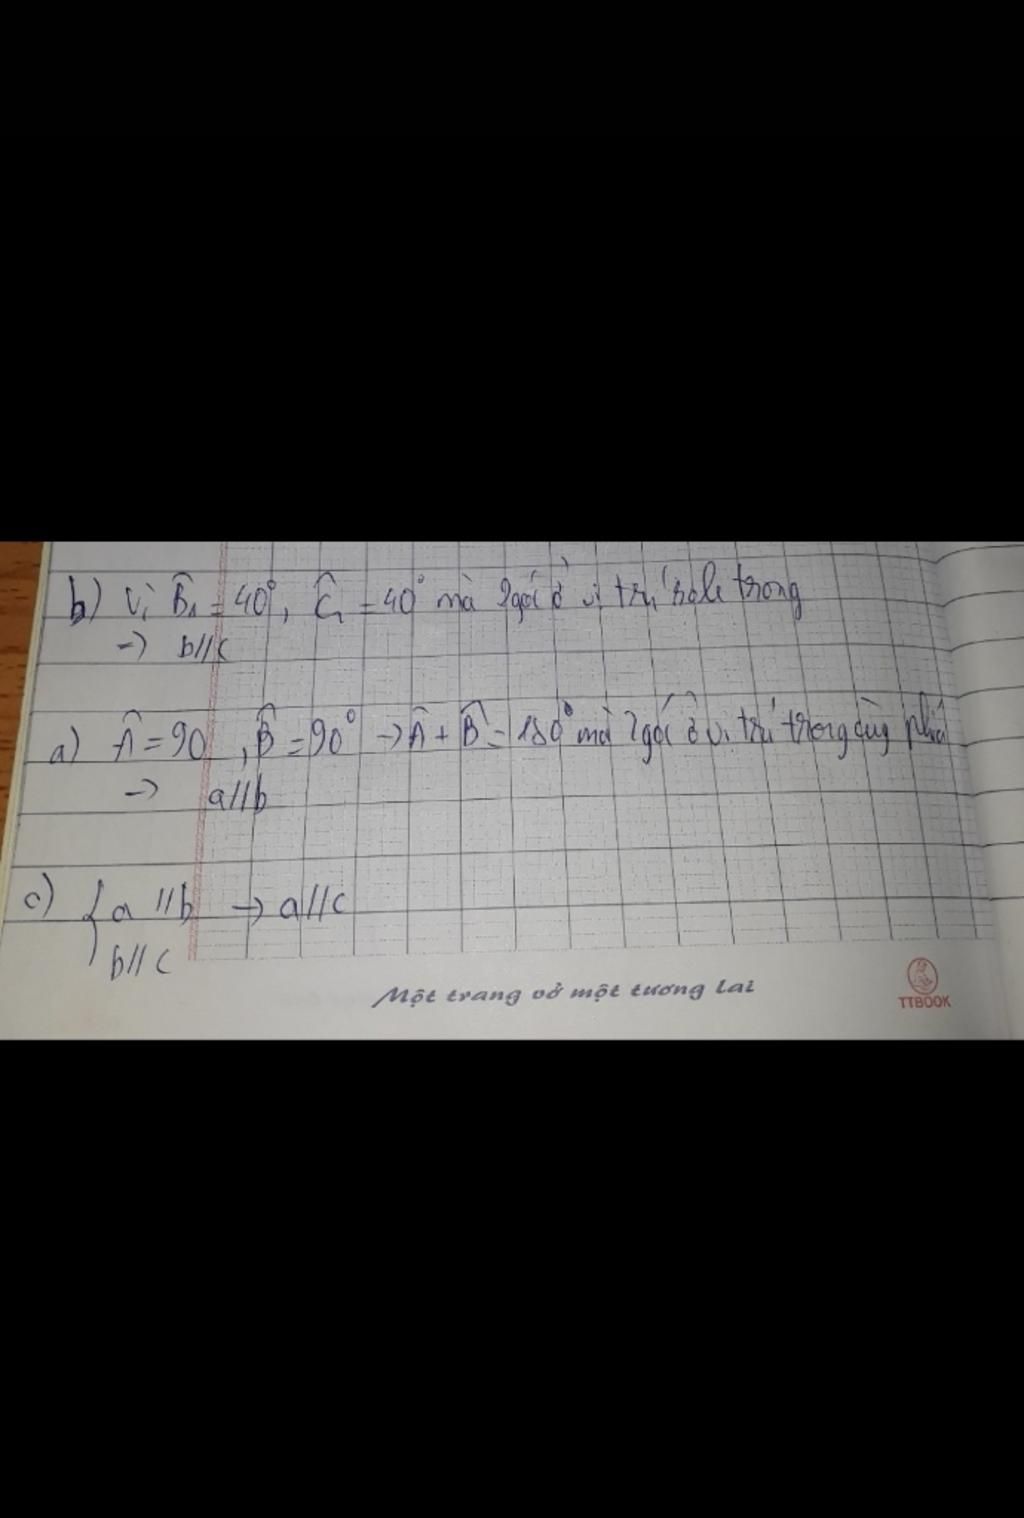 b) Vì B̂₁ = 40°, Ĉ₁ = 40° mà 2 góc ở vị trí sole trong
→ b//c
a) Â = 90, B̂ = 90° → Â + B̂ = 180° mà 2 góc ở vị trí trong cùg phía
→ a//b
c) { a // b → a//c
b// c
Một trang vở một tương lai
TTBOOK